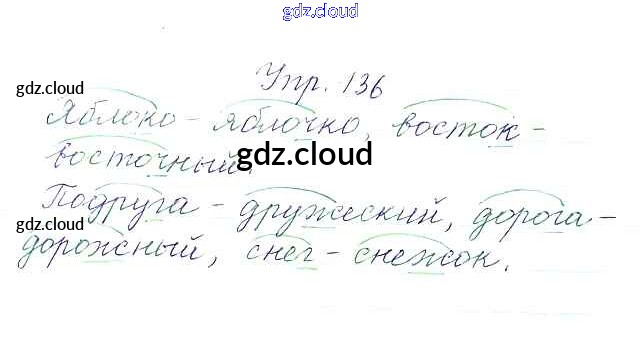 gdz.cloud
Упр. 136
gdz.cloud
Яблоко - яблочко, восток -
восточный.
gdz.cloud
Подруга - дружеский, дорога -
gdz.cloud
дорожный, снег - снежок.